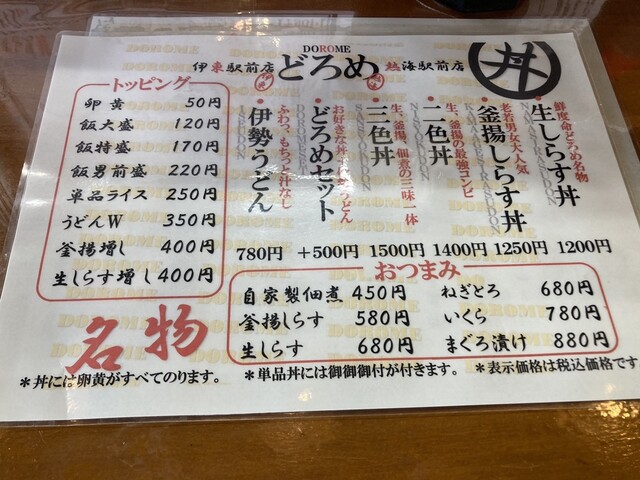 DOROME
伊東駅前店 どろめ 熱海駅前店
丼
鮮度命どろめ名物
・生しらす丼
1200円
老若男女大人気
・釜揚しらす丼
1250円
生、釜揚の最強コンビ
・二色丼
1400円
生、釜揚、佃煮の三味一体
・三色丼
1500円
・どろめセット
+500円
ふわっ、もちっと汁なし
・伊勢うどん
780円
トッピング
卵黄 50円
飯大盛 120円
飯特盛 170円
飯男前盛 220円
単品ライス 250円
うどんW 350円
釜揚増し 400円
生しらす増し 400円
名物
おつまみ
自家製佃煮 450円
釜揚しらす 580円
生しらす 680円
ねぎとろ 680円
いくら 780円
まぐろ漬け 880円
*丼には卵黄がすべてのります。
*単品丼には御御御付が付きます。
*表示価格は税込価格です